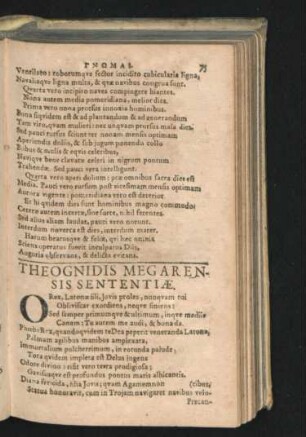 ΓΝΩΜΑΙ. 73
Ventilato: roborumque sector incidito cubicularia ligna,
Navaliaque ligna multa, & quæ navibus congrua sunt.
Quarta vero incipito naves compingere hiantes.
Nona autem media pomeridiana, melior dies.
Prima vero nona prorsus innoxia hominibus.
Bona siquidem est & ad plantandum & ad generandum
Tam viro, quam mulieri: nec unquam prorsus mala dies.
Sed pauci rursus sciunt ter nonam mensis optimam
Aperiendis doliis, & sub jugum ponendo collo
Bobus & mulis & equis celeribus,
Navique bene clavata celeri in nigrum pontum
Trahendæ. Sed pauci vera intelligunt.
Quarta vero aperi dolium: præ omnibus sacra dies est
Media. Pauci vero rursum post vicesimam mensis optimam
Aurora vigente: pomeridiana vero est deterior.
Et hi quidem dies sunt hominibus magno commodo:
Ceteræ autem incertæ, sine sorte, nihil ferentes.
Sed alius aliam laudat, pauci vero norunt.
Interdum noverca est dies, interdum mater.
Harum beatusque & felix, qui hæc omnia
Sciens operatus fuerit inculpatus Diis,
Auguria observans, & delicta evitans.
THEOGNIDIS MEGAREN-
SIS SENTENTIÆ.
O Rex, Latonæ fili, Jovis proles, nunquam tui
Obliviscar exordiens, neque finiens:
Sed semper primumque & ultimum, inque mediis
Canam: Tu autem me audi, & bona da.
Phœbe Rex, quando quidem te Dea peperit veneranda Latona,
Palmam agilibus manibus amplexata,
Immortalium pulcherrimum, in rotunda palude,
Tota quidem impleta est Delus ingens
Odore divino: risit vero terra prodigiosa;
Gavisusque est profundus pontus maris albicantis.
Diana fericida, filia Jovis; quam Agamemnon (ribus,
Statua honoravit, cum in Trojam navigaret navibus velo-
Precan-